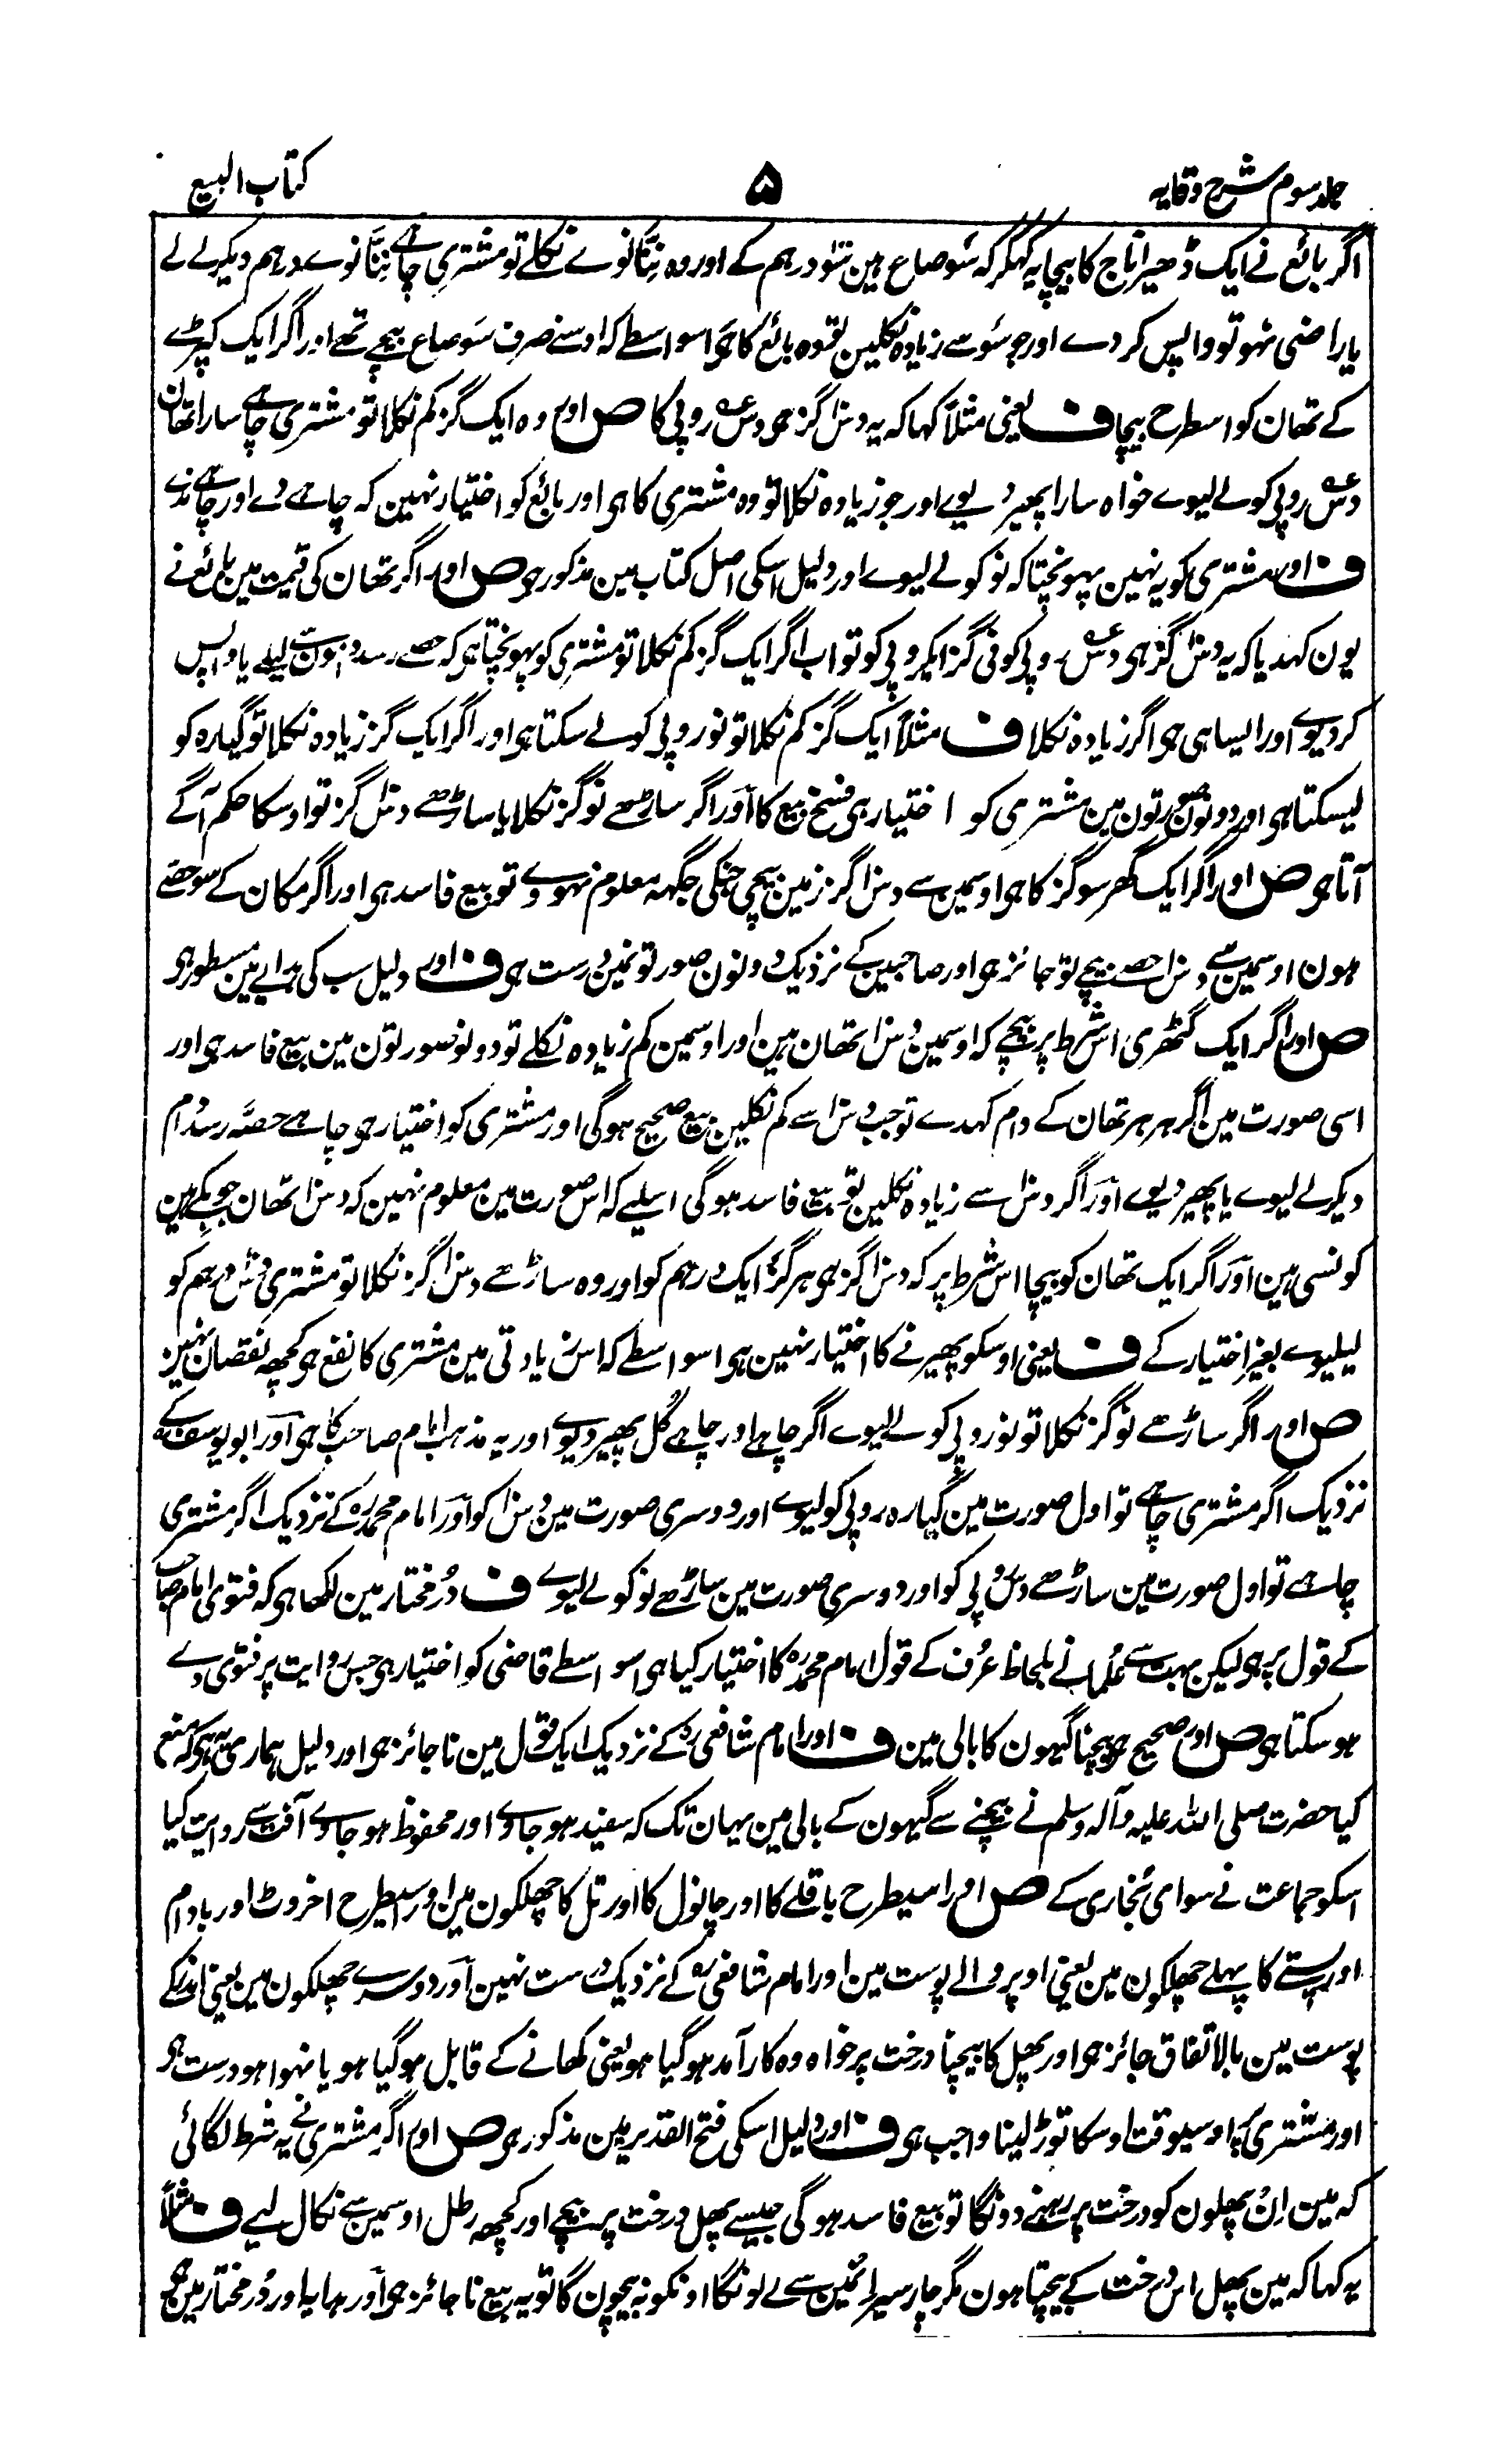 جلد سوم شرح وقایه
۵
کتاب البیع
اگر بائع نے ایک ڈھیر اناج کا بیچا یہ کہکر کہ سَو صاع ہین سَو درہم کے اور وہ ننّانوے نکلے تو مشتری چاہے ننّانوے درہم دیکر لے لے
یا راضی نہو تو واپس کر دے اور جو سَو سے زیادہ نکلین تو وہ بائع کا ہی اسواسطے کہ اوسنے صرف سَو صاع بیچے تھے اور اگر ایک کپڑے
کے تھان کو اسطرح بیچا ف یعنی مثلاً کہا کہ یہ دس گز ہی دس روپی کا ص اور وہ ایک گز کم نکلا تو مشتری چاہے سارا تھان
دس روپی کو لے لیوے خواہ سارا پھیر دیوے اور جو زیادہ نکلا تو وہ مشتری کا ہی اور بائع کو اختیار نہین کہ چاہے دے اور چاہے ندے
ف اور مشتری کو یہ نہین پہونچتا کہ نو کو لے لیوے اور دلیل اسکی اصل کتاب مین مذکور ہی ص اور اگر تھان کی قیمت مین بائع نے
یون کہدیا کہ یہ دس گز ہی دس روپی کو فی گز ایکروپی کو تو اب اگر ایک گز کم نکلا تو مشتری کو پہونچتا ہی کہ حصے رسد دامون سے لیلے یا واپس
کر دیوے اور ایسا ہی ہی اگر زیادہ نکلا ف مثلاً ایک گز کم نکلا تو نو روپی کو لے سکتا ہی اور اگر ایک گز زیادہ نکلا تو گیارہ کو
لیسکتا ہی اور دونون صورتون مین مشتری کو اختیار ہی فسخ بیع کا اور اگر ساڑھے نو گز نکلا یا ساڑھے دس گز تو اوسکا حکم آگے
آتا ہی ص اور اگر ایک گھر سو گز کا ہی اوسمین سے دس گز زمین بیچی جنکی جگہہ معلوم نہووے تو بیع فاسد ہی اور اگر مکان کے سو حصے
ہون اوسمین سے دس حصے بیچے تو جائز ہی اور صاحبین کے نزدیک دونون صورتونمین درست ہی ف اور دلیل سب کی ہدایے مین مسطور ہی
ص اور اگر ایک گٹھری اس شرط پر بیچے کہ اوسمین دس تھان ہین اور اوسمین کم زیادہ نکلے تو دونو صورتون مین بیع فاسد ہی اور
اسی صورت مین اگر ہر ہر تھان کے دام کہدے تو جب دس سے کم نکلین بیع صحیح ہوگی اور مشتری کو اختیار ہی چاہے حصّہ رسد دام
دیکر لے لیوے یا پھیر دیوے اور اگر دس سے زیادہ نکلین تو بیع فاسد ہوگی اسلیے کہ اس صورت مین معلوم نہین کہ دس تھان جو بکے ہین
کونسی ہین اور اگر ایک تھان کو بیچا اس شرط پر کہ دس گز ہی ہر گز ایک درہم کو اور وہ ساڑھے دس گز نکلا تو مشتری دس درہم کو
لیلیوے بغیر اختیار کے ف یعنی اوسکو پھیرنے کا اختیار نہین ہی اسواسطے کہ اس زیادتی مین مشتری کا نفع ہی کچھہ نقصان نہین
ص اور اگر ساڑھے نو گز نکلا تو نو روپی کو لے لیوے اگر چاہے اور چاہے کُل پھیر دیوے اور یہ مذہب امام صاحب کا ہی اور ابو یوسف کے
نزدیک اگر مشتری چاہے تو اول صورت مین گیارہ روپی کو لیوے اور دوسری صورت مین دس کو اور امام محمدرہ کے نزدیک اگر مشتری
چاہے تو اول صورت مین ساڑھے دس روپی کو اور دوسری صورت مین ساڑھے نو کو لے لیوے ف دُر مختار مین لکھا ہی کہ فتوی امام صاحب
کے قول پر ہی لیکن بہت سے عُلما نے بلحاظ عُرف کے قول امام محمدرہ کا اختیار کیا ہی اسواسطے قاضی کو اختیار ہی جس روایت پر فتوی دے
ہو سکتا ہی ص اور صحیح ہی بیچنا گیہون کا بالی مین ف اور امام شافعیرہ کے نزدیک ایک قول مین ناجائز ہی اور دلیل ہماری یہ ہی کہ منع
کیا حضرت صلی اللہ علیہ وآلہ وسلم نے بیچنے سے گیہون کے بالی مین یہان تک کہ سفید ہو جاوے اور محفوظ ہو جاوے آفت سے روایت کیا
اسکو جماعت نے سوای بخاری کے ص اور اسیطرح باقلے کا اور چانول کا اور تل کا چھلکون مین اور اسیطرح اخروٹ اور بادام
اور پستے کا پہلے چھلکون مین یعنی اوپر والے پوست مین اور امام شافعیرہ کے نزدیک درست نہین اور دوسرے چھلکون مین یعنی اندر کے
پوست مین بالاتفاق جائز ہی اور پھل کا بیچنا درخت پر خواہ وہ کارآمد ہو گیا ہو یعنی کھانے کے قابل ہو گیا ہو یا نہوا ہو درست ہی
اور مشتری پر اوسیوقت اوسکا توڑ لینا واجب ہی ف اور دلیل اسکی فتح القدیر مین مذکور ہی ص اور اگر مشتری نے یہ شرط لگائی
کہ مین اِن پھلون کو درخت پر رہنے دونگا تو بیع فاسد ہوگی جیسے پھل درخت پر بیچے اور کچھہ رطل اوسمین سے نکال لیے ف مثلاً
یہ کہا کہ مین پھل اس درخت کے بیچتا ہون مگر چار سیر ائمین سے لے لونگا اونکو نہ بیچون گا تو یہ بیع ناجائز ہی اور ہدایا اور دُر مختار مین ہی